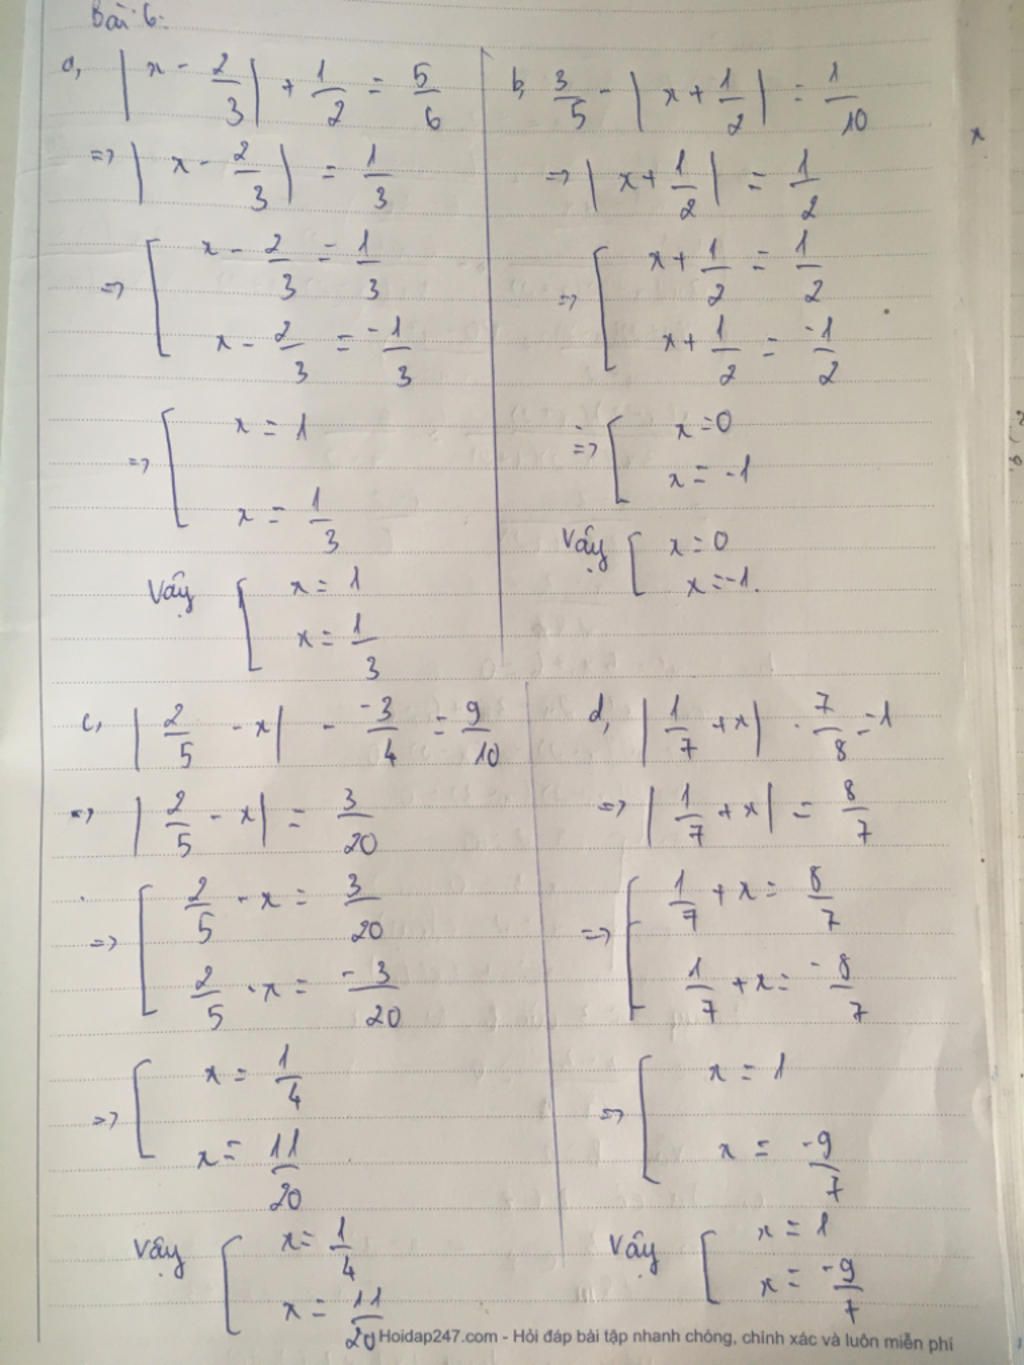 Bài 6:
a, |x - 2/3| + 1/2 = 5/6
=> |x - 2/3| = 1/3
=> [ x - 2/3 = 1/3
x - 2/3 = -1/3
=> [ x = 1
x = 1/3
Vậy [ x = 1
x = 1/3
b, 3/5 - |x + 1/2| = 1/10
=> |x + 1/2| = 1/2
=> [ x + 1/2 = 1/2
x + 1/2 = -1/2
=> [ x = 0
x = -1
Vậy [ x = 0
x = -1.
c, |2/5 - x| - -3/4 = 9/10
=> |2/5 - x| = 3/20
=> [ 2/5 - x = 3/20
2/5 - x = -3/20
=> [ x = 1/4
x = 11/20
Vậy [ x = 1/4
x = 11/20
d, |1/7 + x| . 7/8 = 1
=> |1/7 + x| = 8/7
=> [ 1/7 + x = 8/7
1/7 + x = -8/7
=> [ x = 1
x = -9/7
Vậy [ x = 1
x = -9/7
Hoidap247.com - Hỏi đáp bài tập nhanh chóng, chính xác và luôn miễn phí